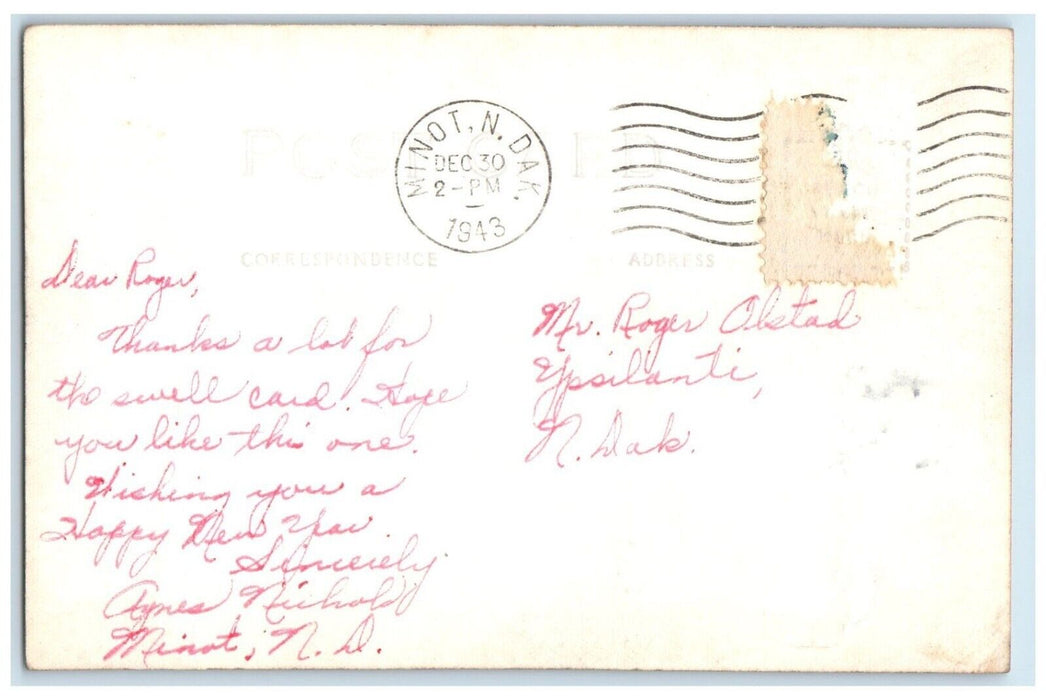 POST CARD
MINOT, N. DAK.
DEC 30
2-PM
1943
CORRESPONDENCE
ADDRESS
Dear Roger,
Thanks a lot for
the swell card. Hope
you like this one.
Wishing you a
Happy New Year.
Sincerely
Agnes Nichols
Minot, N. D.
Mr. Roger Olstad
Ypsilanti,
N. Dak.